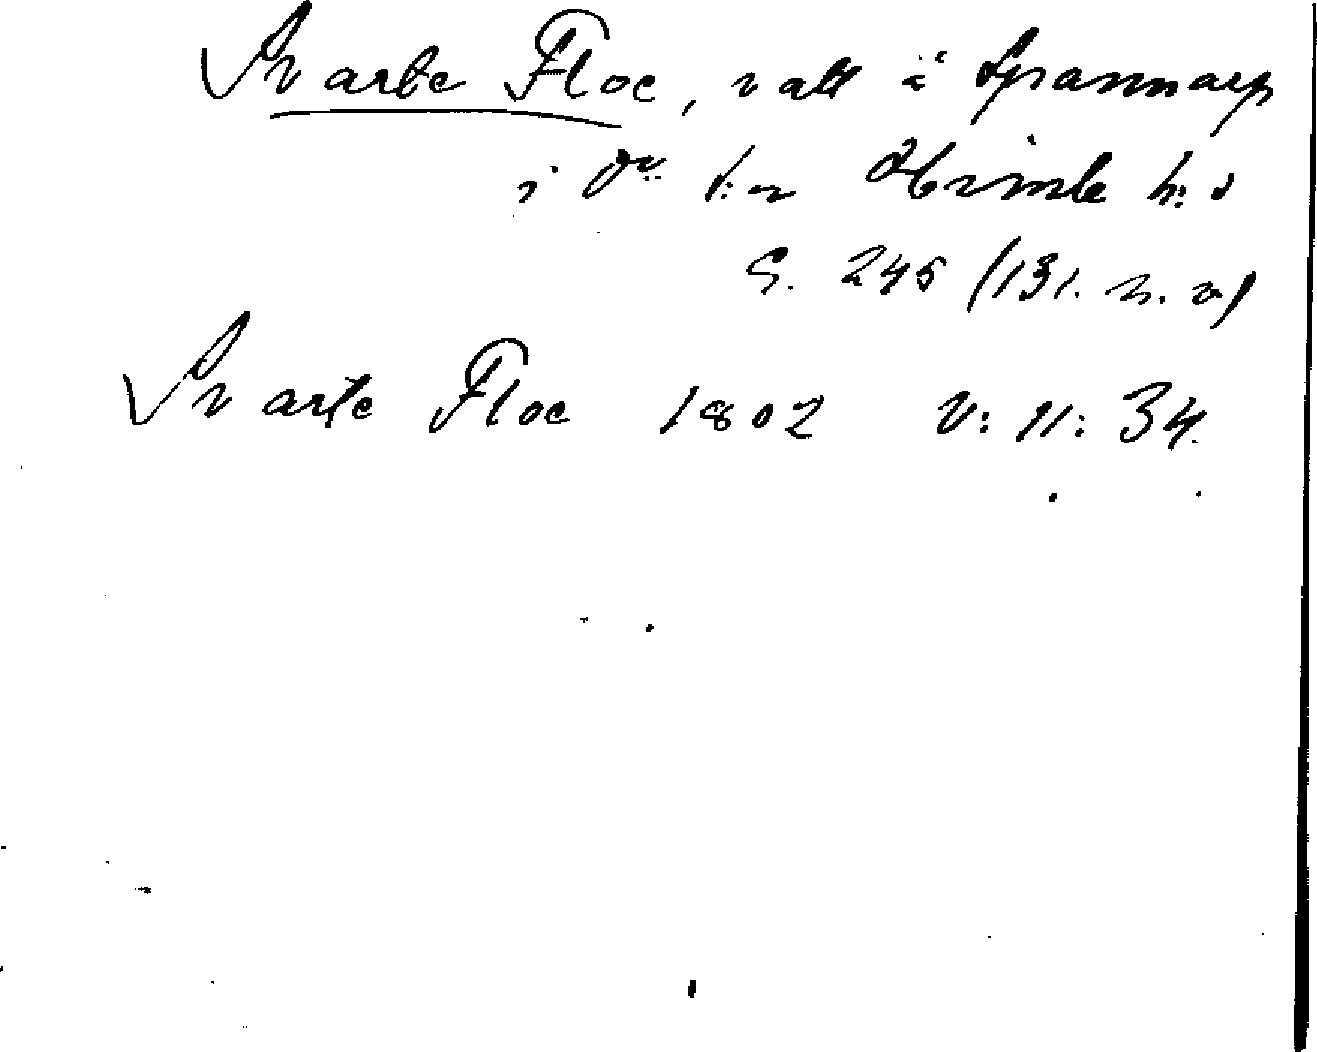 Svarte Floe, vatt å Spannarp
i Dn s:n Himle h:d
S. 245 (131. n. v)
Svarte Floe 1802 V: 11: 34.